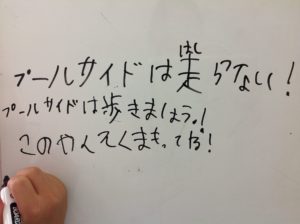 はし
プールサイドは走らない!
プールサイドは歩きましょう。!
この まもってね!